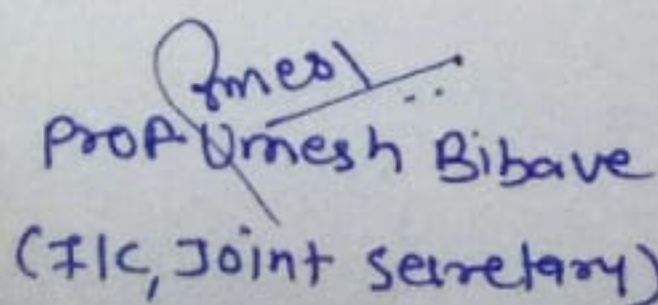 Umesh
Prof Umesh Bibave
(I/C, Joint secretary)